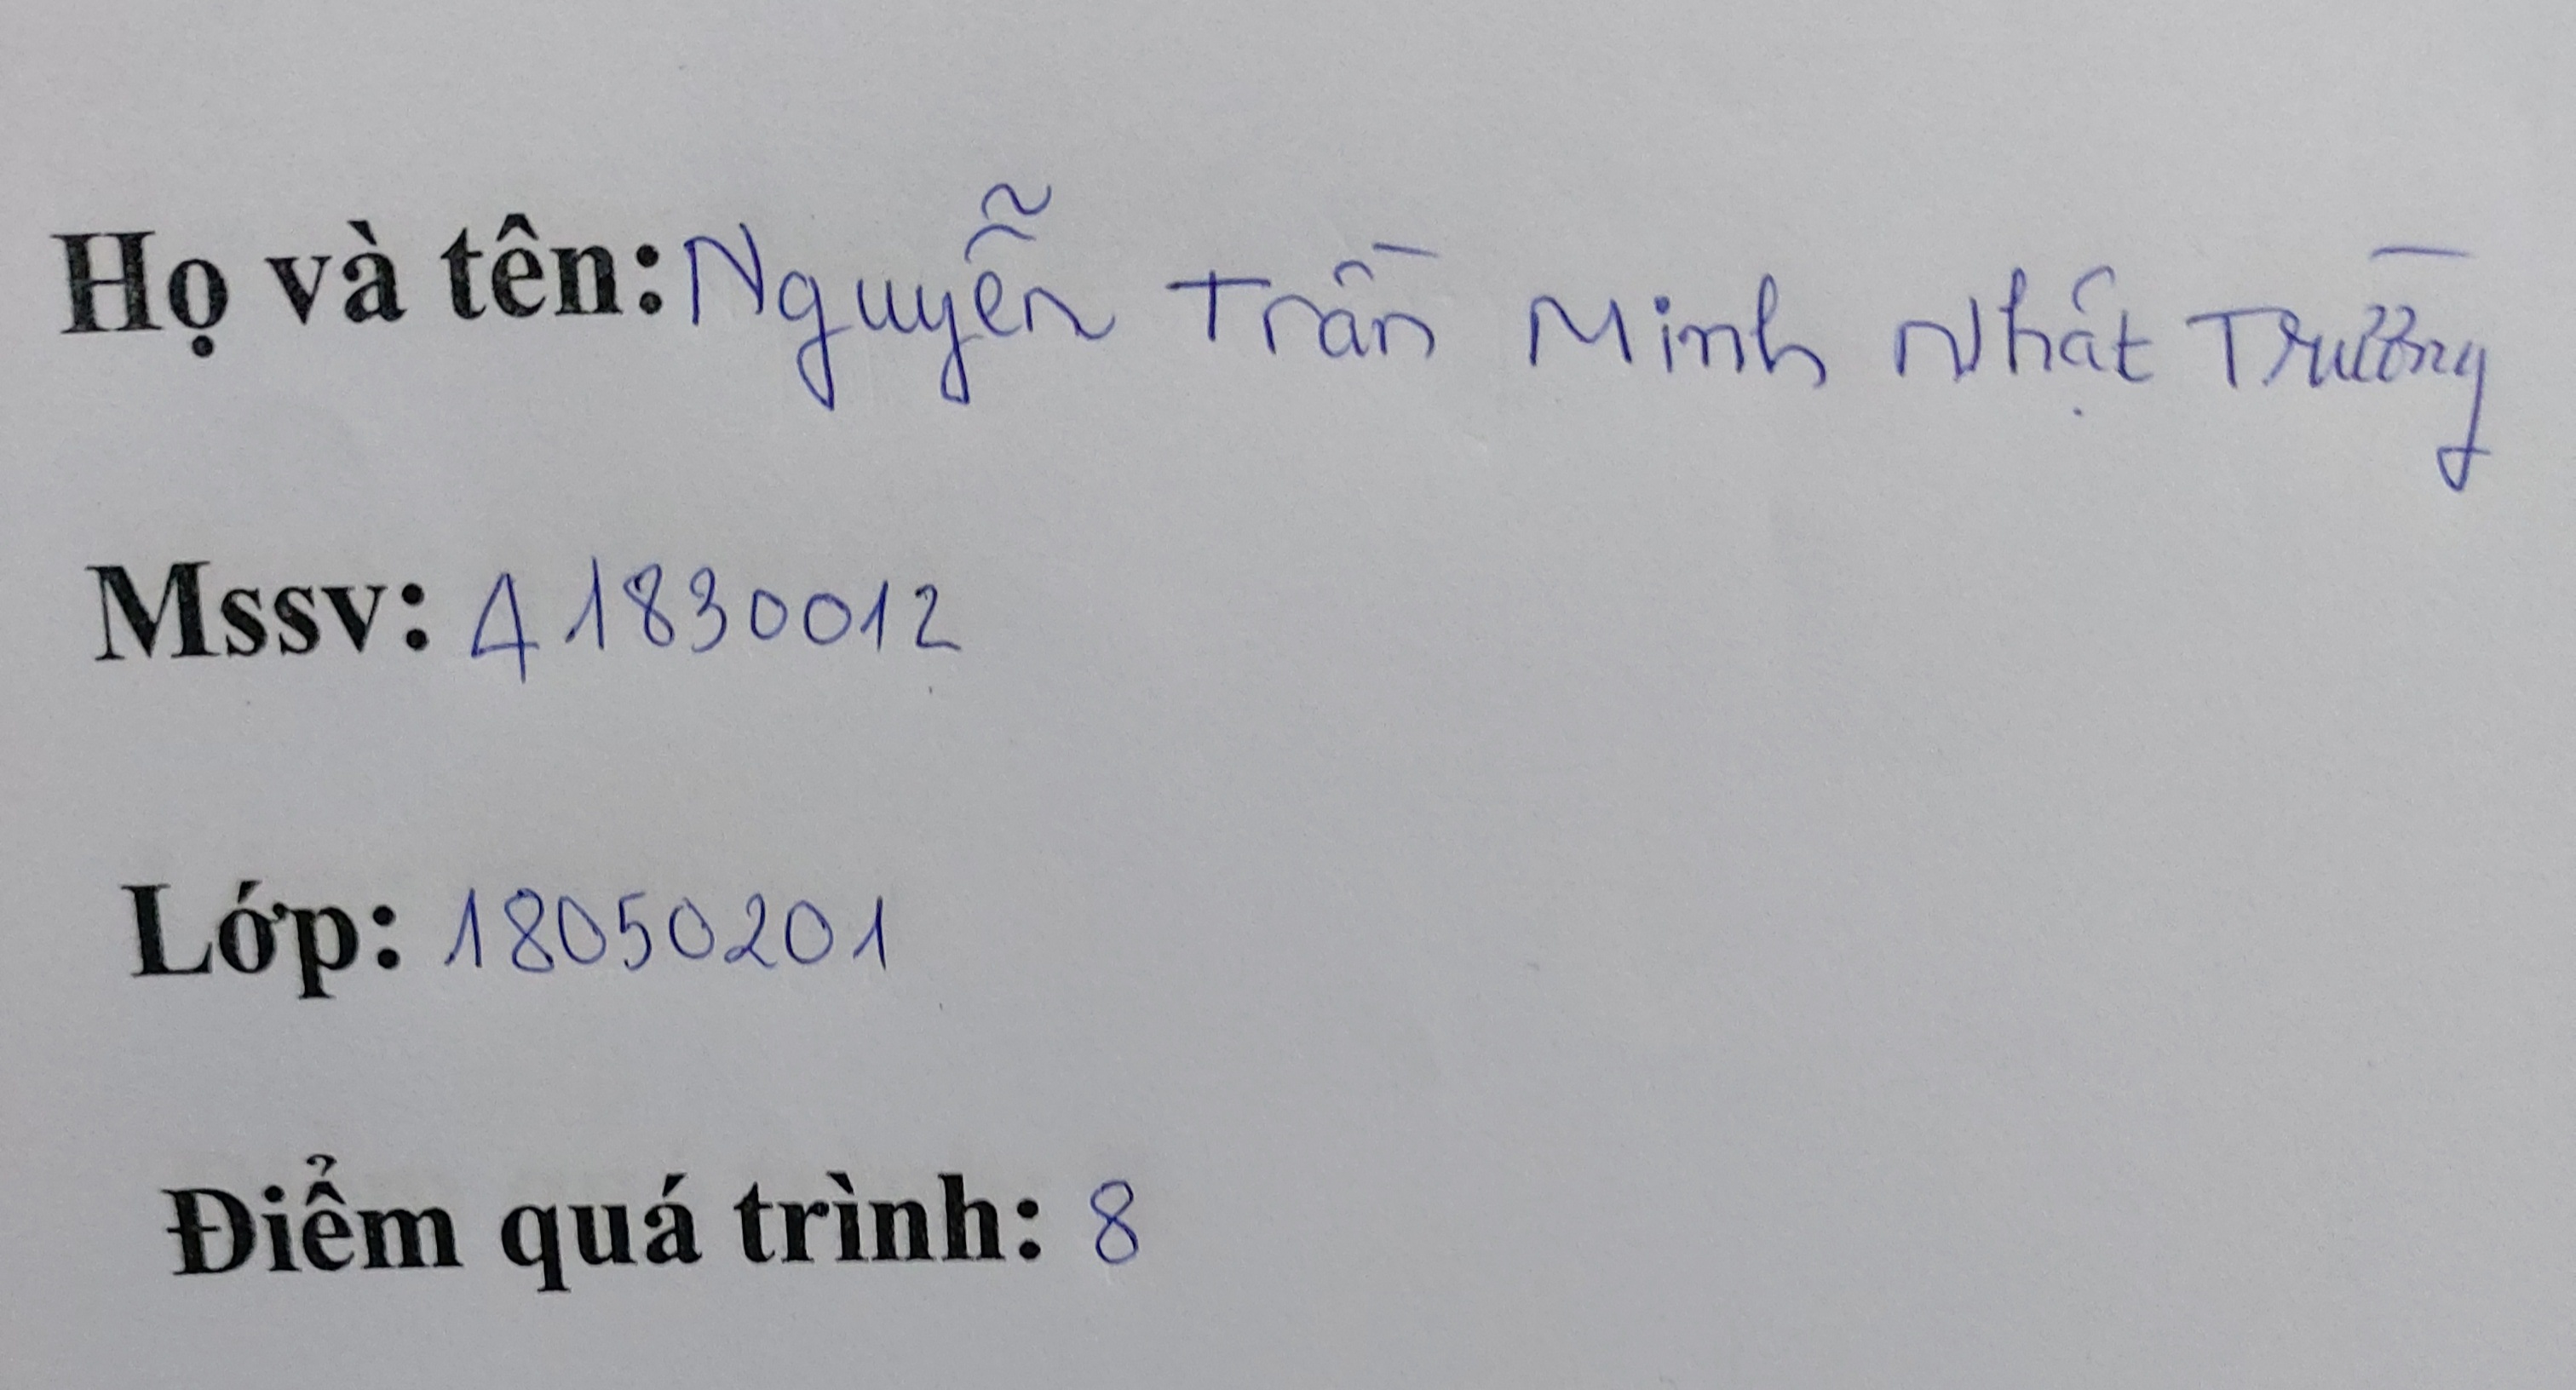 Họ và tên: Nguyễn Trần Minh Nhật Trường
Mssv: A1830012
Lớp: 18050201
Điểm quá trình: 8